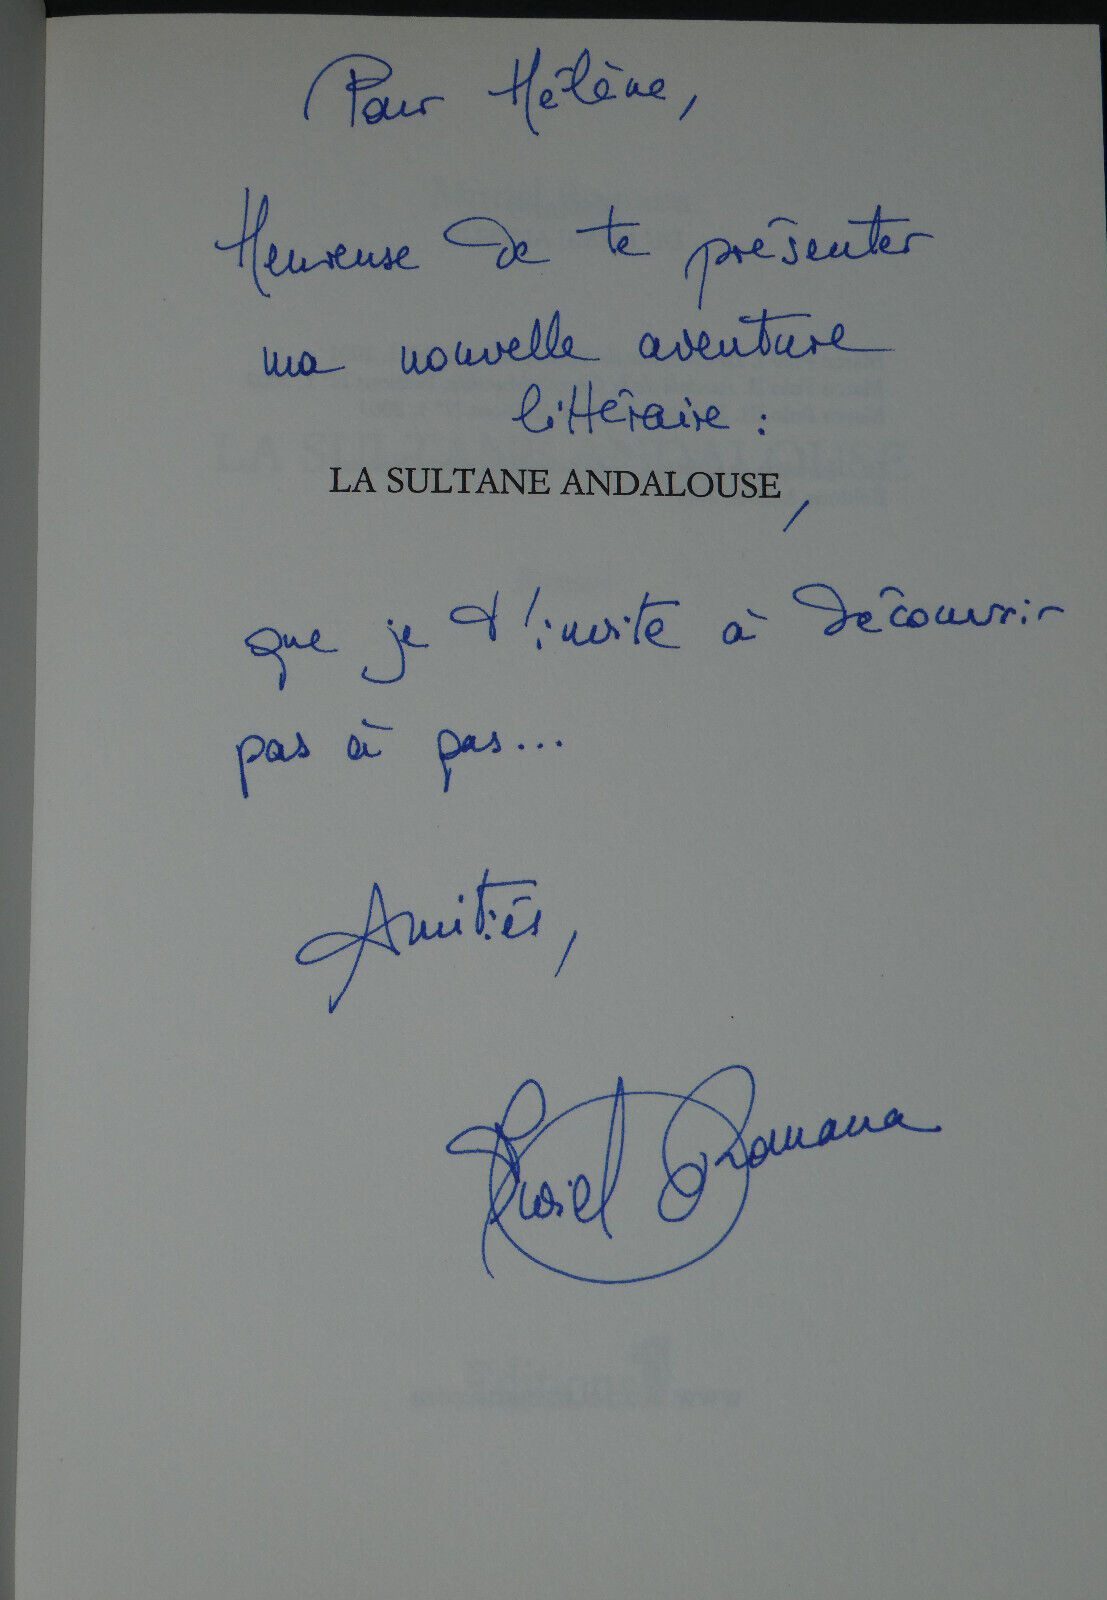 Pour Hélène,
Heureuse de te présenter
ma nouvelle aventure
littéraire :
LA SULTANE ANDALOUSE,
que je t'invite à découvrir
pas à pas...
Amitiés,
Muriel Romana